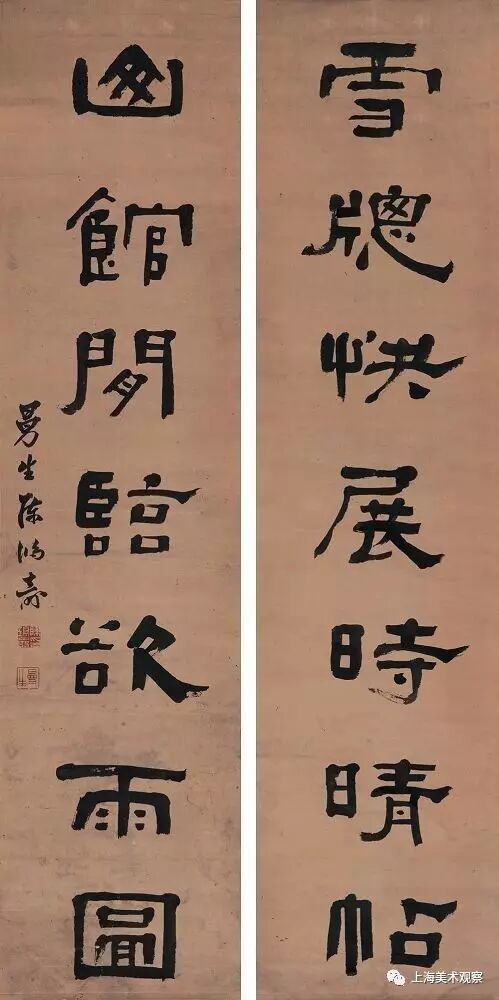 雪牕快展時晴帖
幽館閒臨欲雨圖
曼生陳鴻壽
曼生
上海美术观察